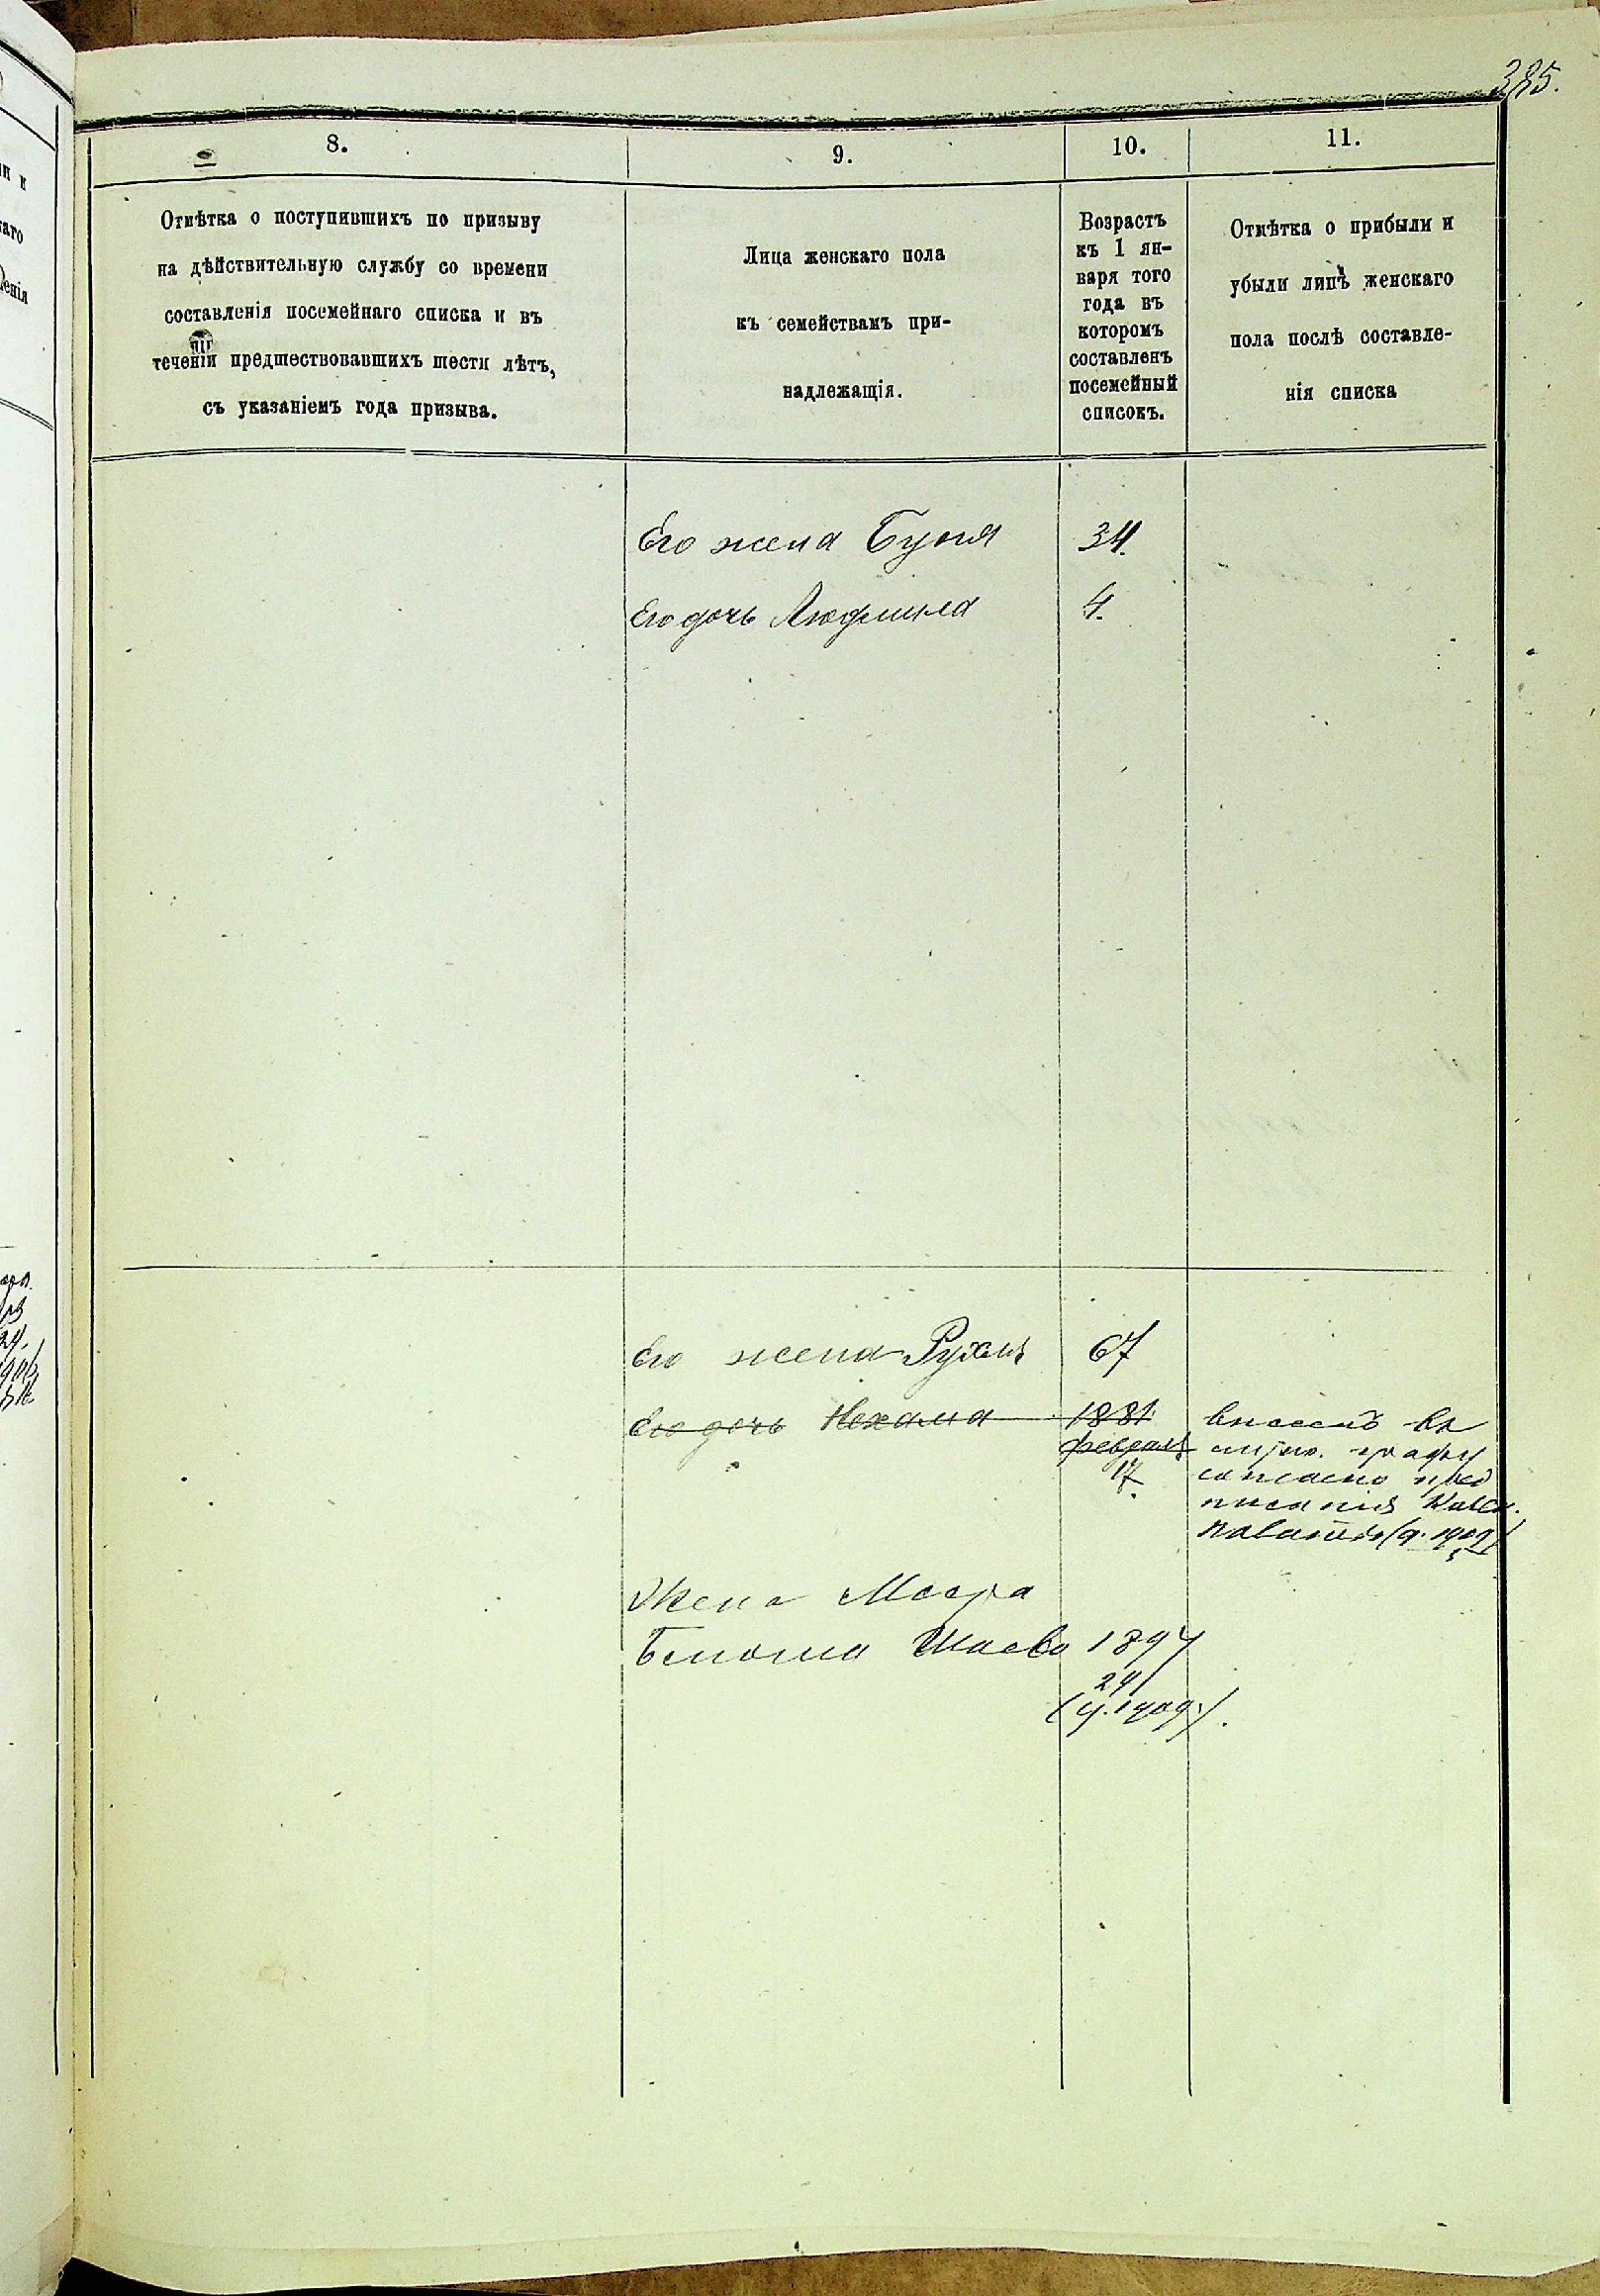 385.
8.
9.
10.
11.
Отмѣтка о поступившихъ по призыву
на дѣйствительную службу со времени
составленія посемейнаго списка и въ
теченіи предшествовавшихъ шести лѣтъ,
съ указаніемъ года призыва.
Лица женскаго пола
къ семействамъ при-
надлежащія.
Возрастъ
къ 1 ян-
варя того
года въ
которомъ
составленъ
посемейный
списокъ.
Отмѣтка о прибыли и
убыли лицъ женскаго
пола послѣ составле-
нія списка
Его жена Буня 34.
Его дочь Людмила 4.
Его жена Рухля 67
Его дочь Нехама 1881
февраля
17.
внесена въ
графу
согласно пред
писанія Казен.
Палаты 1909
Жена Меера
Шаева 1897
24/
(у. 1909).